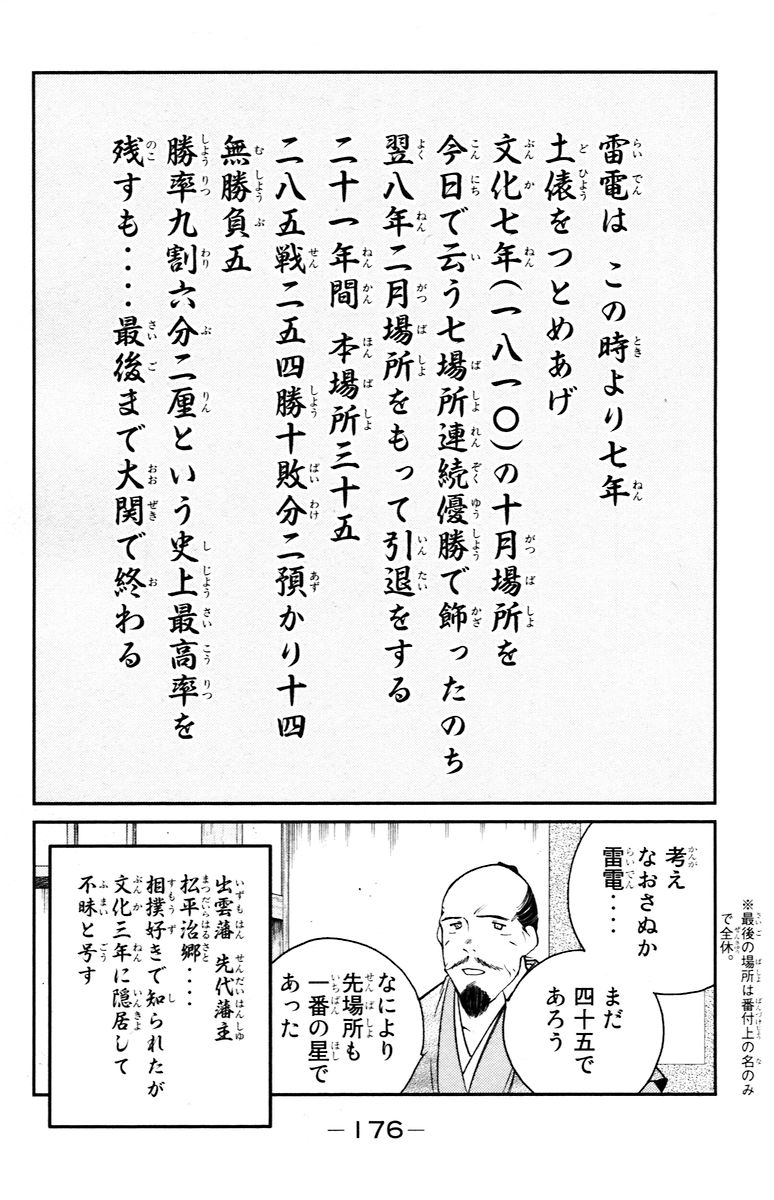 雷電は この時より七年
土俵をつとめあげ
文化七年(一八一〇)の十月場所を
今日で云う七場所連続優勝で飾ったのち
翌八年二月場所をもって引退をする
二十一年間 本場所三十五
二八五戦二五四勝十敗分二預かり十四
無勝負五
勝率九割六分二厘という史上最高率を
残すも‥‥最後まで大関で終わる
※最後の場所は番付上の名のみ
で全休。
考え
なおさぬか
雷電‥‥
まだ
四十五で
あろう
なにより
先場所も
一番の星で
あった
出雲藩 先代藩主
松平治郷‥‥
相撲好きで知られたが
文化三年に隠居して
不昧と号す
－176－